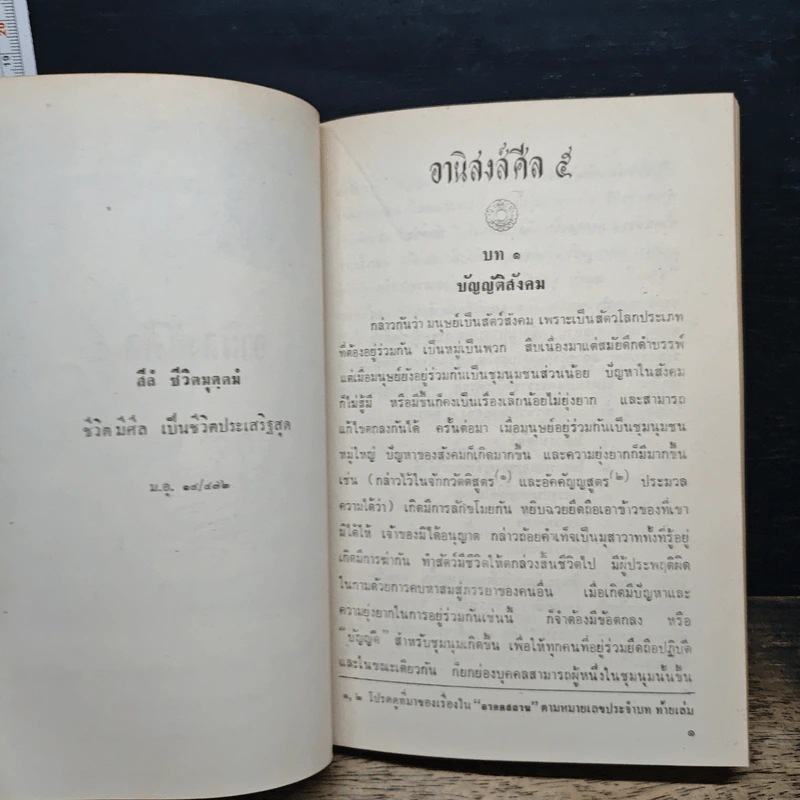 20
19
สีลํ ชีวิตมุตฺตมํ
ชีวิตมีศีล เป็นชีวิตประเสริฐสุด
ม.อุ. ๑๔/๔๘๒
อานิสงส์ศีล ๕
บท ๑
บัญญัติสังคม
กล่าวกันว่า มนุษย์เป็นสัตว์สังคม เพราะเป็นสัตวโลกประเภท
ที่ต้องอยู่ร่วมกัน เป็นหมู่เป็นพวก สืบเนื่องมาแต่สมัยดึกดำบรรพ์
แต่เมื่อมนุษย์ยังอยู่ร่วมกันเป็นชุมนุมชนส่วนน้อย ปัญหาในสังคม
ก็ไม่สู้มี หรือมีขึ้นก็คงเป็นเรื่องเล็กน้อยไม่ยุ่งยาก และสามารถ
แก้ไขตกลงกันได้ ครั้นต่อมา เมื่อมนุษย์อยู่ร่วมกันเป็นชุมนุมชน
หมู่ใหญ่ ปัญหาของสังคมก็เกิดมากขึ้น และความยุ่งยากก็มีมากขึ้น
เช่น (กล่าวไว้ในจักกวัตติสูตร(๑) และอัคคัญญสูตร(๒) ประมวล
ความได้ว่า) เกิดมีการลักขโมยกัน หยิบฉวยยึดถือเอาข้าวของที่เขา
มิได้ให้ เจ้าของมิได้อนุญาต กล่าวถ้อยคำเท็จเป็นมุสาวาททั้งที่รู้อยู่
เกิดมีการฆ่ากัน ทำสัตว์มีชีวิตให้ตกล่วงสิ้นชีวิตไป มีผู้ประพฤติผิด
ในกามด้วยการคบหาสมสู่ภรรยาของคนอื่น เมื่อเกิดมีปัญหาและ
ความยุ่งยากในการอยู่ร่วมกันเช่นนี้ ก็จำต้องมีข้อตกลง หรือ
"บัญญัติ" สำหรับชุมนุมเกิดขึ้น เพื่อให้ทุกคนที่อยู่ร่วมยึดถือปฏิบัติ
และในขณะเดียวกัน ก็ยกย่องบุคคลสามารถผู้หนึ่งในชุมนุมนั้นขึ้น
๑, ๒ โปรดดูที่มาของเรื่องใน "อาคตสถาน" ตามหมายเลขประจำบท ท้ายเล่ม
๑